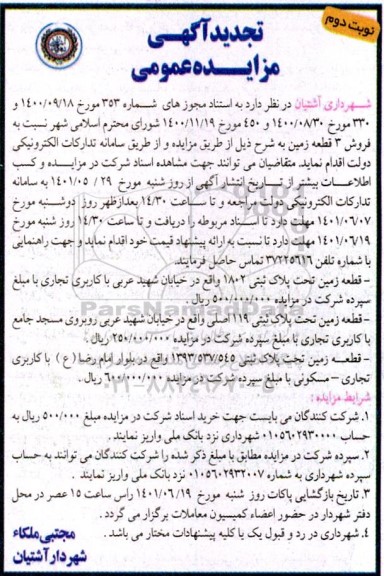 نوبت دوم
تجدید آگهی
مزایده عمومی
شهرداری آشتیان در نظر دارد به استناد مجوز های شماره ۳۵۳ مورخ ۱۴۰۰/۰۹/۱۸ و
۳۳۰ مورخ ۱۴۰۰/۰۸/۳۰ و ۴۵۰ مورخ ۱۴۰۰/۱۱/۱۹ شورای محترم اسلامی شهر نسبت به
فروش ۳ قطعه زمین به شرح ذیل از طریق مزایده و از طریق سامانه تدارکات الکترونیکی
دولت اقدام نماید. متقاضیان می توانند جهت مشاهده اسناد شرکت در مزایده و کسب
اطلاعات بیشتر از تاریخ انتشار آگهی از روز شنبه مورخ ۲۹ / ۱۴۰۱/۰۵ به سامانه
تدارکات الکترونیکی دولت مراجعه و تا ساعت ۱۴/۳۰ بعدازظهر روز دوشنبه مورخ
۱۴۰۱/۰۶/۰۷ مهلت دارد تا اسناد مربوطه را دریافت و تا ساعت ۱۴/۳۰ روز شنبه مورخ
۱۴۰۱/۰۶/۱۹ مهلت دارد تا نسبت به ارائه پیشنهاد قیمت خود اقدام نماید و جهت راهنمایی
با شماره تلفن ۳۷۲۲۵۶۱۶ تماس حاصل فرمایند.
- قطعه زمین تحت پلاک ثبتی ۱۸۰۲ واقع در خیابان شهید عربی با کاربری تجاری با مبلغ
سپرده شرکت در مزایده ۵۰۰/۰۰۰/۰۰۰ ریال .
- قطعه زمین تحت پلاک ثبتی ۱۱۹ اصلی واقع در خیابان شهید عربی روبروی مسجد جامع
با کاربری تجاری با مبلغ سپرده شرکت در مزایده ۲۵۰/۰۰۰/۰۰۰ ریال .
- قطعه زمین تحت پلاک ثبتی ۱۳۹۳/۵۳۷/۵۴۵ واقع در بلوار امام رضا ( ع ) با کاربری
تجاری - مسکونی با مبلغ سپرده شرکت در مزایده ۶۰۰/۰۰۰/۰۰۰ ریال .
شرایط مزایده :
۱. شرکت کنندگان می بایست جهت خرید اسناد شرکت در مزایده مبلغ ۵۰۰/۰۰۰ ریال به
حساب ۰۱۰۵۶۰۲۹۳۰۰۰۰ شهرداری نزد بانک ملی واریز نمایند .
۲. سپرده شرکت در مزایده مطابق با مبلغ ذکر شده را شرکت کنندگان می توانند به حساب
سپرده شهرداری به شماره ۰۱۰۵۶۰۲۹۳۲۰۰۷ نزد بانک ملی واریز نمایند .
۳. تاریخ بازگشایی پاکات روز شنبه مورخ ۱۴۰۱/۰۶/۱۹ راس ساعت ۱۵ عصر در محل
دفتر شهردار در حضور اعضاء کمیسیون معاملات برگزار می گردد .
۴. شهرداری در رد و قبول یک یا کلیه پیشنهادات مختار می باشد .
مجتبی ملکاء
شهردار آشتیان